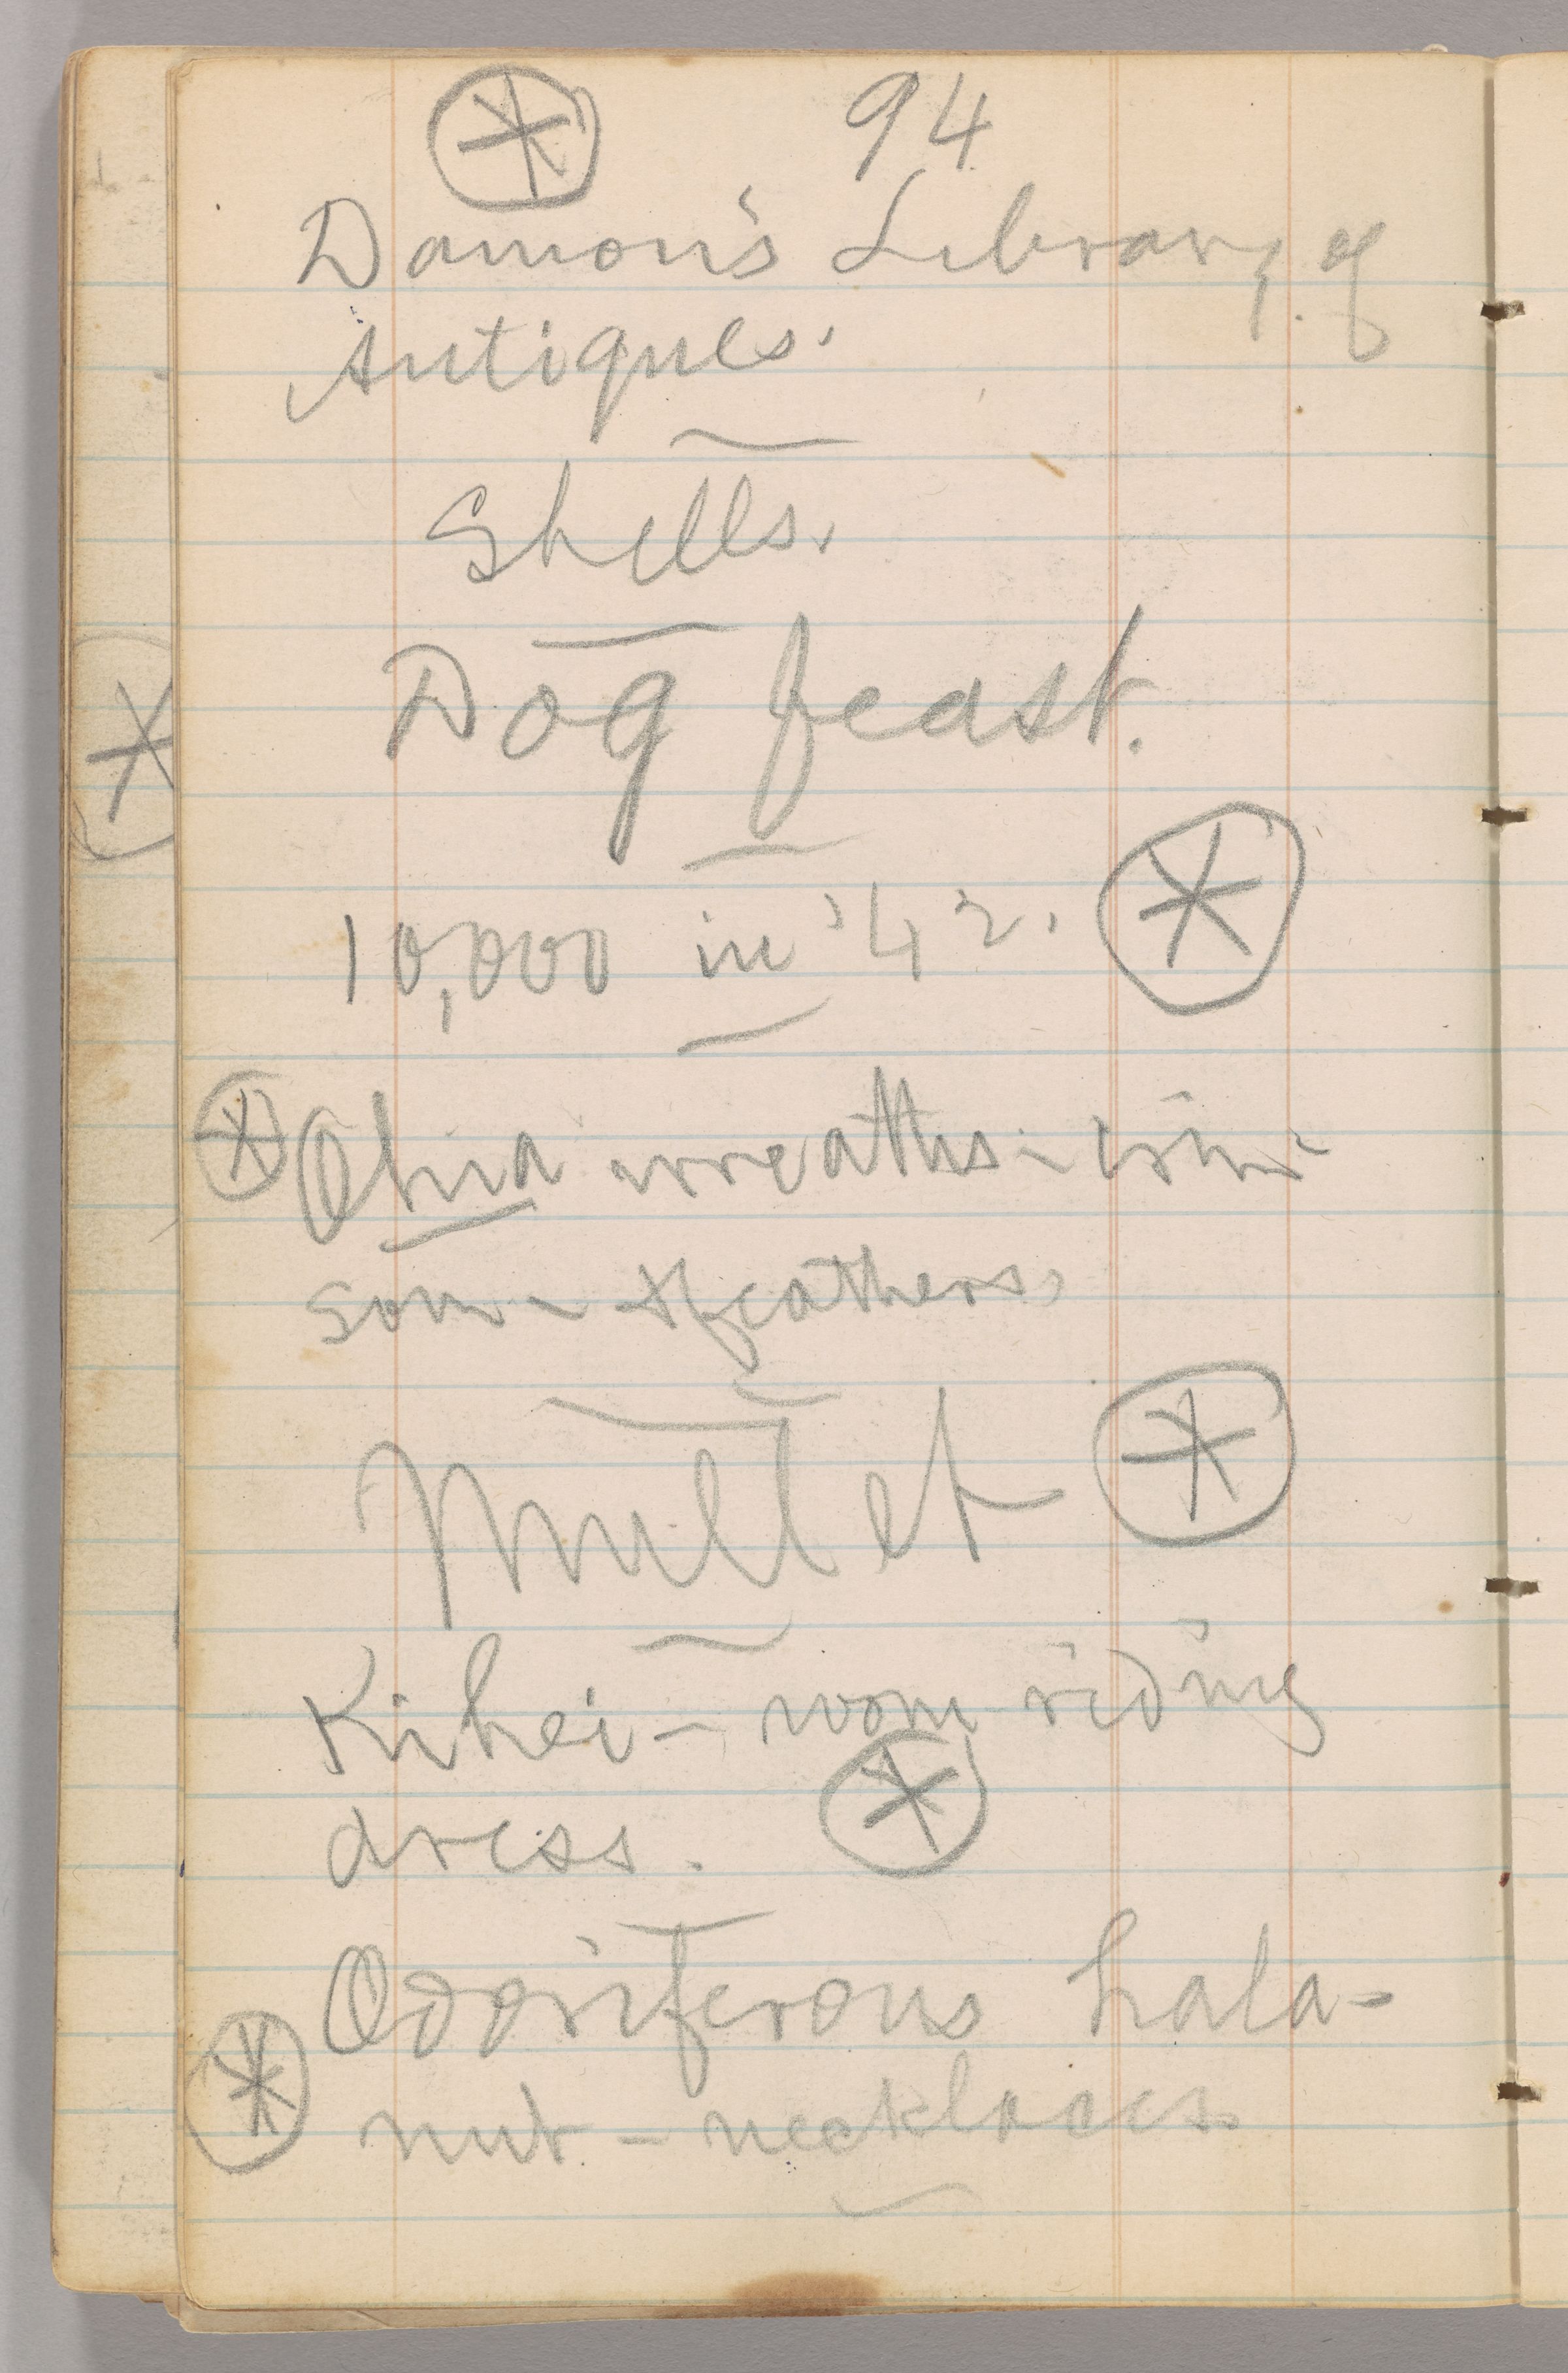 94
Damon's Library of
Antiques.
Shells.
Dog feast.
10,000 in '42.
Ohia wreaths - crim-
son - & feathers.
Mullet
Kihei - wom riding
dress.
Odoriferous hala-
nut - necklaces